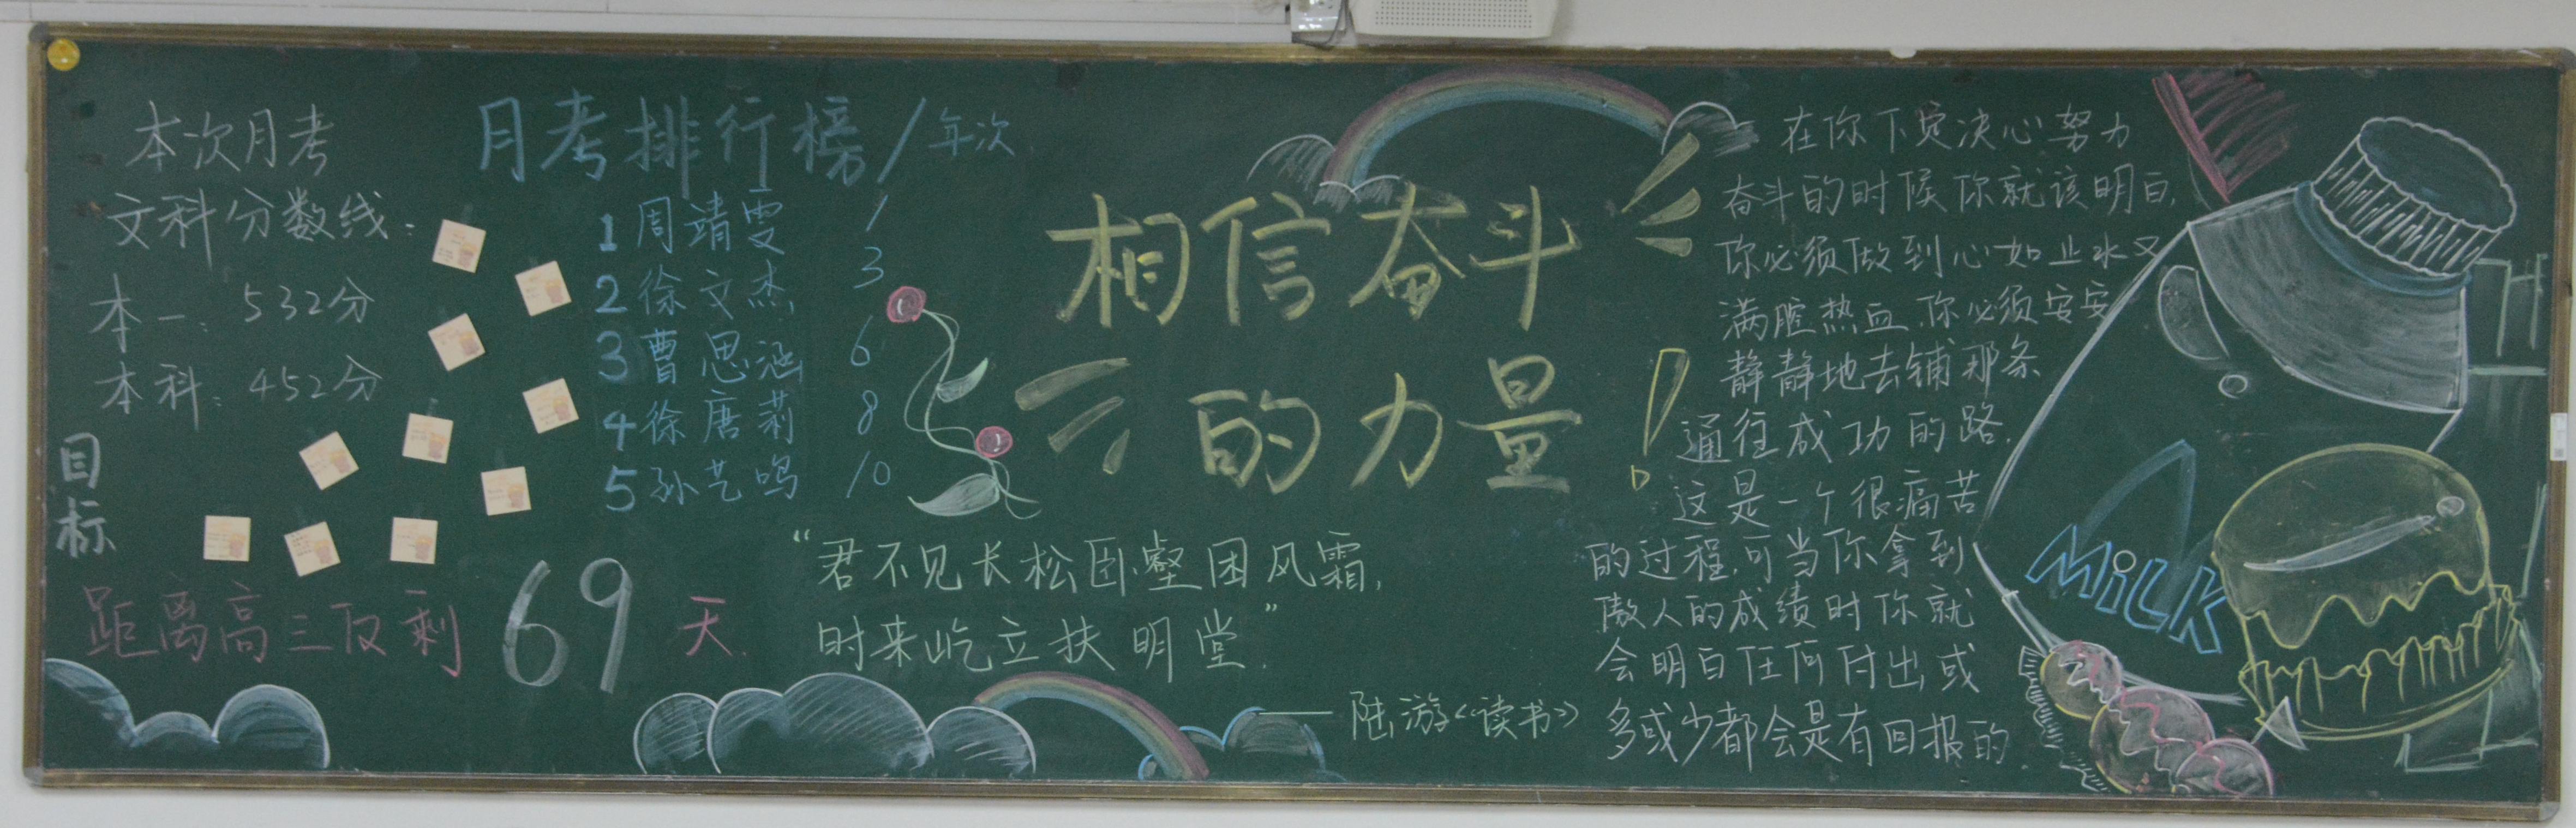 本次月考
文科分数线:
本一: 532分
本科: 452分
目标
距离高三仅剩 69 天.
月考排行榜/年次
1 周靖雯 1
2 徐文杰 3
3 曹思涵 6
4 徐唐莉 8
5 孙艺鸣 10
相信奋斗
的力量!
“君不见长松卧壑困风霜,
时来屹立扶明堂.”
——陆游《读书》
在你下定决心努力
奋斗的时候你就该明白,
你必须做到心如止水又
满腔热血,你必须安安
静静地去铺那条
通往成功的路.
这是一个很痛苦
的过程,可当你拿到
傲人的成绩时你就
会明白任何付出或
多或少都会是有回报的.
MiLK